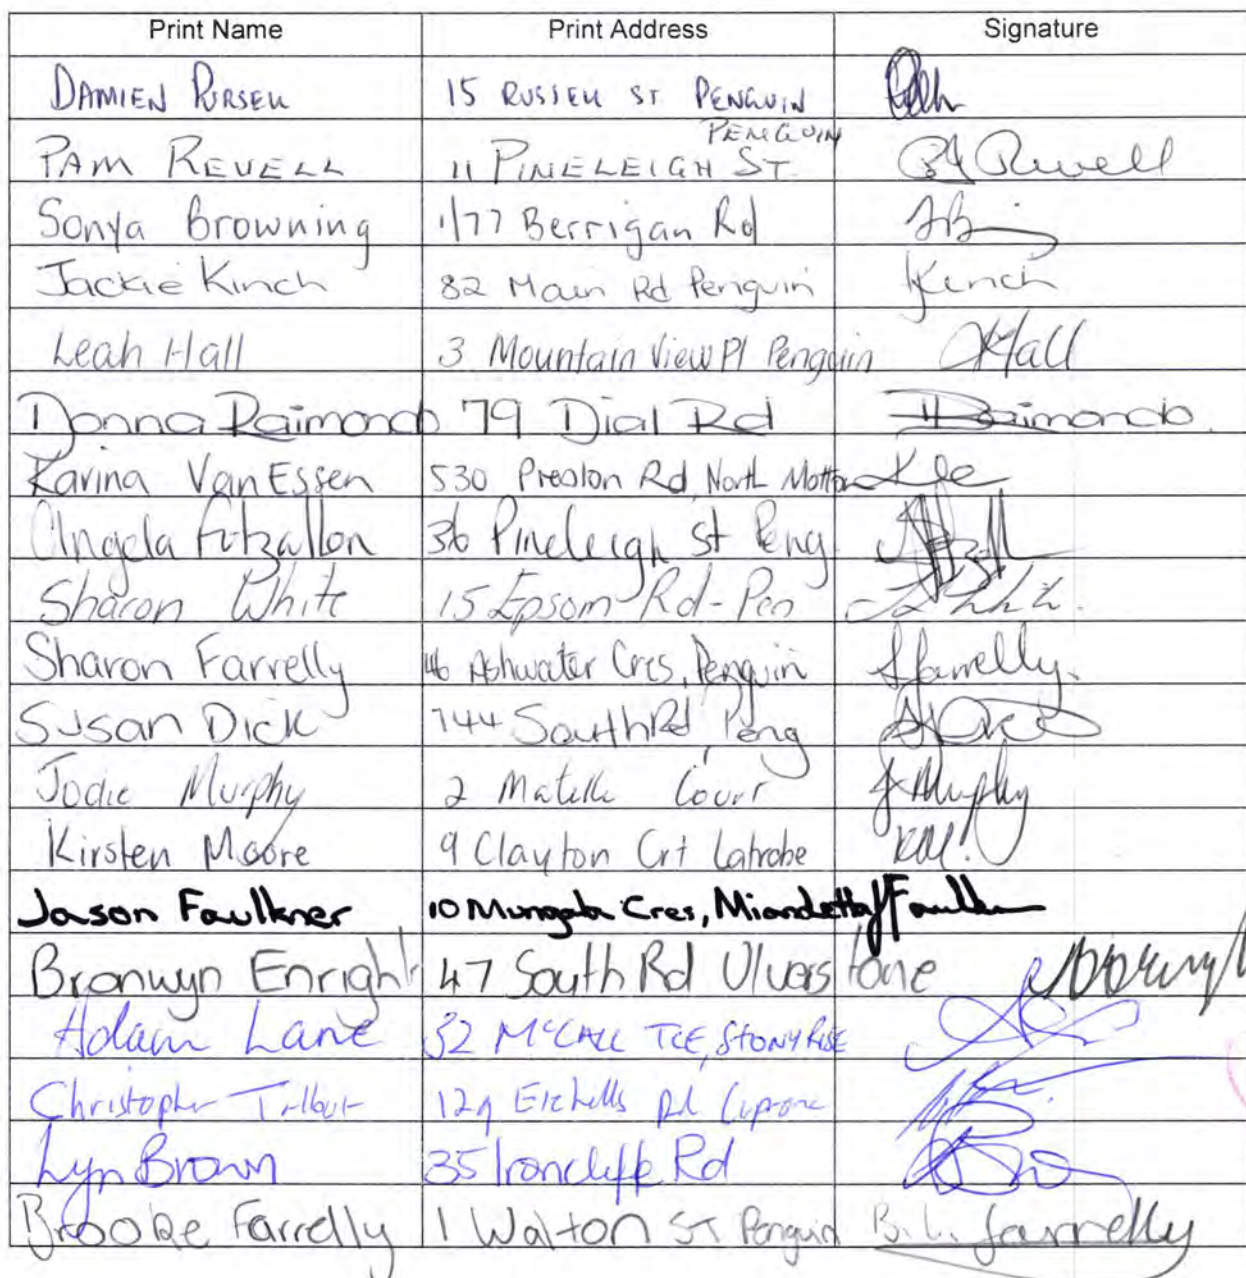 Print Name Print Address Signature
DAMIEN PURSELL 15 RUSSELL ST PENGUIN
PENGUIN
PAM REVELL 11 PINELEIGH ST. PJ Revell
Sonya Browning 1/77 Berrigan Rd
Jackie Kinch 82 Main Rd Penguin Kinch
Leah Hall 3 Mountain View Pl Penguin LHall
Donna Raimondo 79 Dial Rd DRaimondo.
Karina Van Essen 530 Preston Rd, North Motton
Angela Fitzallen 36 Pineleigh St Peng.
Sharon White 15 Epsom Rd - Pen
Sharon Farrelly 46 Ashwater Cres, Penguin SFarrelly.
Susan Dick 744 South Rd, Peng
Jodie Murphy 2 Court J Murphy
Kirsten Moore 9 Clayton Crt Latrobe KM.
Jason Faulkner 10 Mungala Cres, Miandetta JFaulkner
Bronwyn Enright 47 South Rd Ulverstone
Adam Lane 32 McCALL TCE, STONY RISE
Christopher Talbot 129 Rd
Lyn Brown 35 Ironcliffe Rd
Brooke Farrelly 1 Walton ST Penguin B.L. farrelly